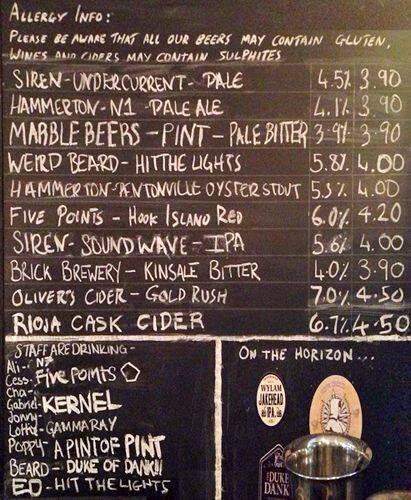 ALLERGY INFO:
PLEASE BE AWARE THAT ALL OUR BEERS MAY CONTAIN GLUTEN,
WINES AND CIDERS MAY CONTAIN SULPHITES
SIREN - UNDERCURRENT - PALE 4.5% 3.90
HAMMERTON - N1 PALE ALE 4.1% 3.90
MARBLE BEERS - PINT - PALE BITTER 3.9% 3.90
WEIRD BEARD - HIT THE LIGHTS 5.8% 4.00
HAMMERTON - PENTONVILLE OYSTER STOUT 5.3% 4.00
FIVE POINTS - HOOK ISLAND RED 6.0% 4.20
SIREN - SOUNDWAVE - IPA 5.6% 4.00
BRICK BREWERY - KINSALE BITTER 4.0% 3.90
OLIVER'S CIDER - GOLD RUSH 7.0% 4.50
RIOJA CASK CIDER 6.7% 4.50
STAFF ARE DRINKING -
Ali - N1
Cess - FIVE POINTS
Cha -
Gabriel - KERNEL
Jonny -
Lotte - GAMMARAY
Poppy - A PINT OF PINT
BEARD - DUKE OF DANK!!
ED - HIT THE LIGHTS
ON THE HORIZON...
WYLAM
JAKEHEAD
IPA
THE DUKE
DANK